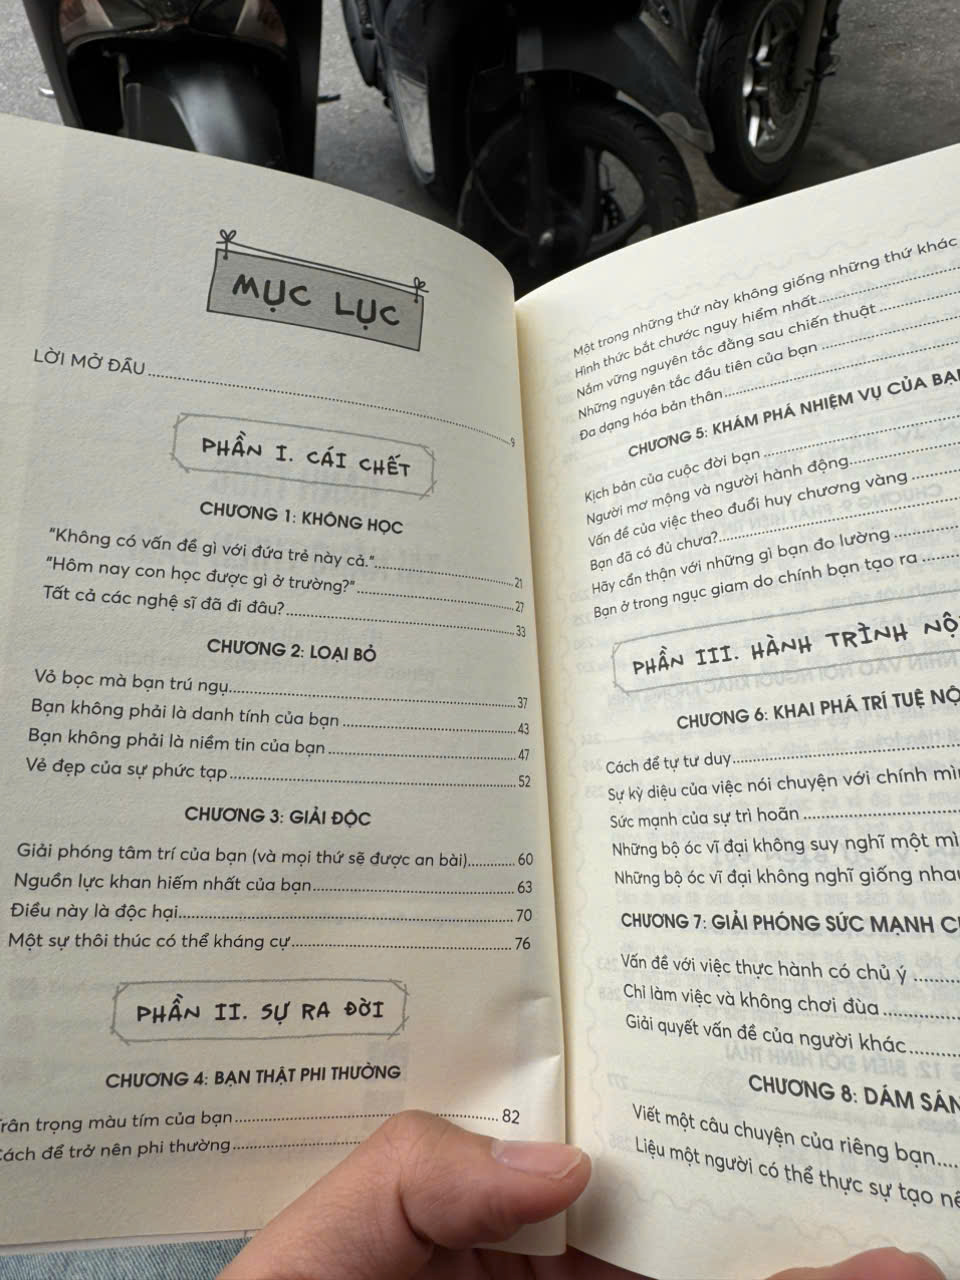 MỤC LỤC
LỜI MỞ ĐẦU 9
PHẦN I. CÁI CHẾT
CHƯƠNG 1: KHÔNG HỌC
"Không có vấn đề gì với đứa trẻ này cả." 21
"Hôm nay con học được gì ở trường?" 27
Tất cả các nghệ sĩ đã đi đâu? 33
CHƯƠNG 2: LOẠI BỎ
Vỏ bọc mà bạn trú ngụ 37
Bạn không phải là danh tính của bạn 43
Bạn không phải là niềm tin của bạn 47
Vẻ đẹp của sự phức tạp 52
CHƯƠNG 3: GIẢI ĐỘC
Giải phóng tâm trí của bạn (và mọi thứ sẽ được an bài) 60
Nguồn lực khan hiếm nhất của bạn 63
Điều này là độc hại 70
Một sự thôi thúc có thể kháng cự 76
PHẦN II. SỰ RA ĐỜI
CHƯƠNG 4: BẠN THẬT PHI THƯỜNG
Trân trọng màu tím của bạn 82
Cách để trở nên phi thường
Một trong những thứ này không giống những thứ khác
Hình thức bắt chước nguy hiểm nhất
Nắm vững nguyên tắc đằng sau chiến thuật
Những nguyên tắc đầu tiên của bạn
Đa dạng hóa bản thân
CHƯƠNG 5: KHÁM PHÁ NHIỆM VỤ CỦA BẠN
Kịch bản của cuộc đời bạn
Người mơ mộng và người hành động
Vấn đề của việc theo đuổi huy chương vàng
Bạn đã có đủ chưa?
Hãy cẩn thận với những gì bạn đo lường
Bạn ở trong ngục giam do chính bạn tạo ra
PHẦN III. HÀNH TRÌNH
CHƯƠNG 6: KHAI PHÁ TRÍ TUỆ
Cách để tự tư duy
Sự kỳ diệu của việc nói chuyện với chính
Sức mạnh của sự trì hoãn
Những bộ óc vĩ đại không suy nghĩ một
Những bộ óc vĩ đại không nghĩ giống
CHƯƠNG 7: GIẢI PHÓNG SỨC MẠNH
Vấn đề với việc thực hành có chủ ý
Chỉ làm việc và không chơi đùa
Giải quyết vấn đề của người khác
CHƯƠNG 8: DÁM
Viết một câu chuyện của riêng bạn
Liệu một người có thể thực sự tạo